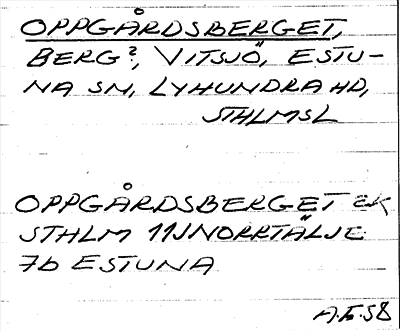 OPPGÅRDSBERGET,
BERG?, VITSJÖ, ESTU-
NA SN, LYHUNDRA HD,
STHLMSL
OPPGÅRDSBERGET EK
STHLM 11J NORRTÄLJE
7b ESTUNA
A.E.58